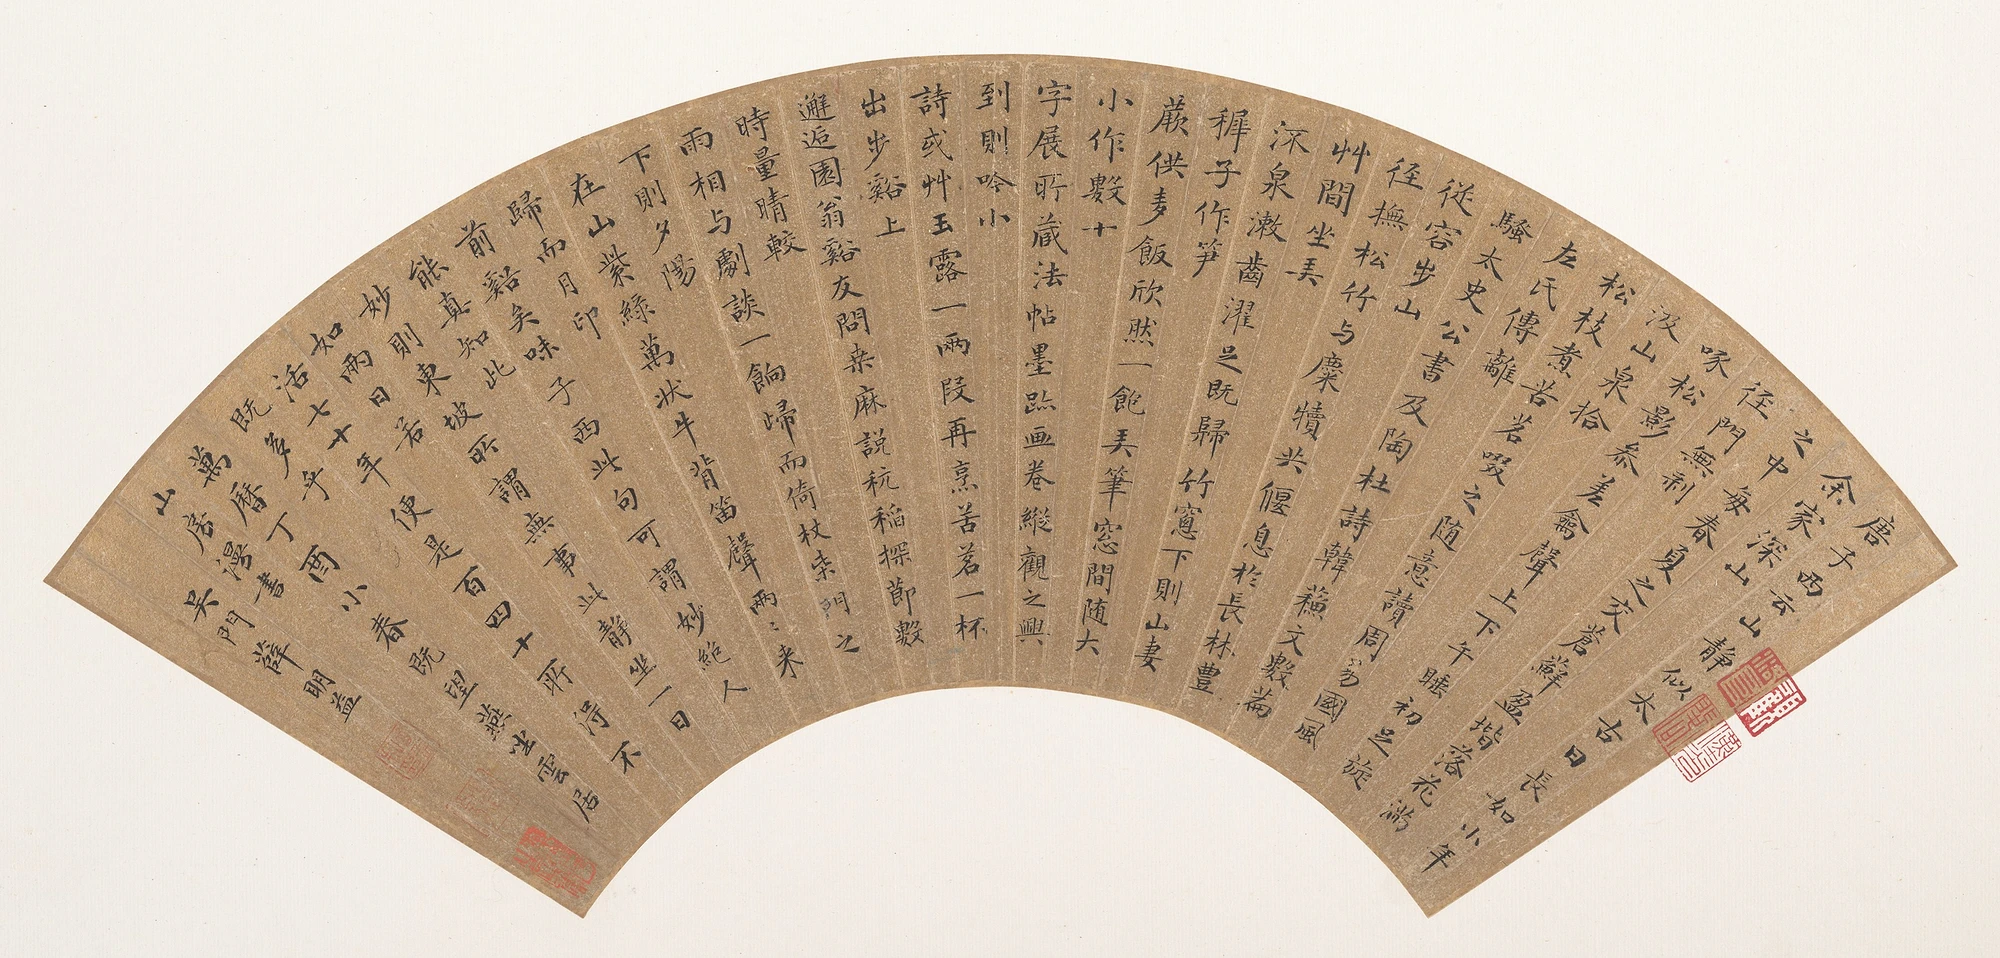 唐子西云山靜似太古日長如小年
余家深山
之中每春夏之交蒼蘚盈堦落花滿
徑門無剥
啄松影參差禽聲上下午睡初足旋
汲山泉拾
松枝煮苦茗啜之随意讀周易國風
左氏傳離
騷太史公書及陶杜詩韓蘓文數篇
從容步山
徑撫松竹与麋犢共偃息於長林豐
艸間坐弄
流泉漱齒濯足既歸竹窻下則山妻
穉子作笋
蕨供麦飯欣然一飽弄筆窓間随大
小作數十
字展所蔵法帖墨跡画卷縱觀之興
到則吟小
詩或艸玉露一兩段再烹苦茗一杯
出步谿上
邂逅園翁谿友問桒麻説秔稻探節數
時量晴較
雨相与劇談一餉歸而倚杖柴門之
下則夕陽
在山紫綠萬状牛背笛聲兩〻来
歸而月印
前谿矣味子西此句可謂妙絶人
能真知此
妙則東坡所謂無事此靜坐一日
如兩日若
活七十年便是百四十所得不
既多乎
萬曆丁酉小春既望燕坐雲居
山房漫書
吴門薛明益